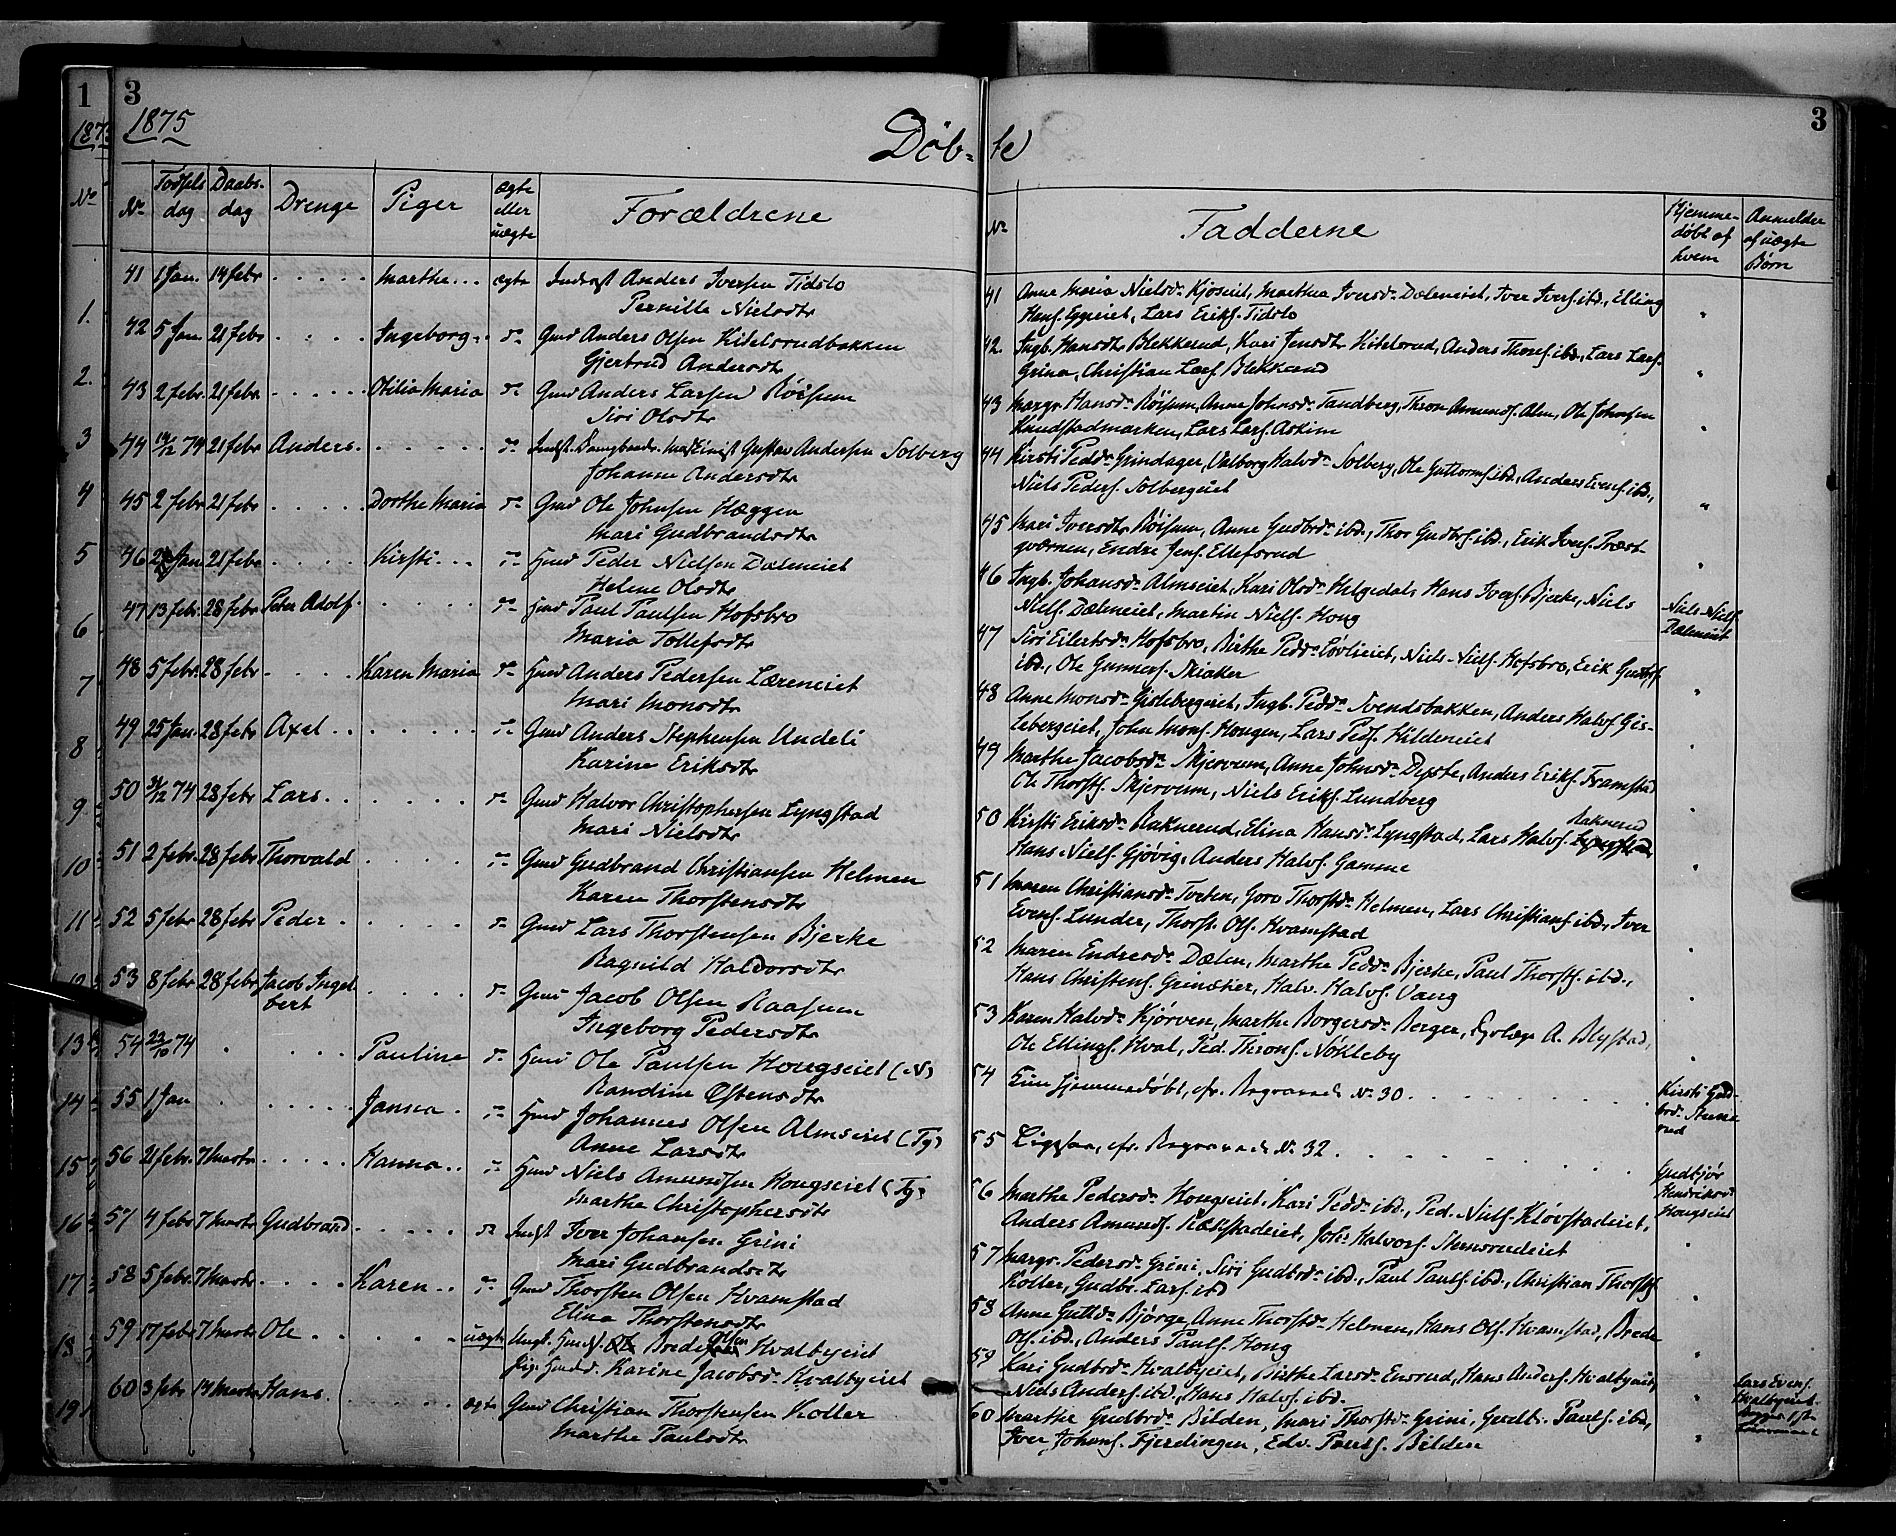 1 3
1875
3
Døb- te
No Fødsels dag Daabs- dag Drenge Piger ægte eller uægte Forældrene
No Fadderne Hjemme- døbt af hvem Anmelder af uægte Børn
41 1 Jan. 14 febr ..... Marthe... ægte Anders Iversen Tidslo
Pernille Nielsdtr
42 5 Jan. 21 febr .... Ingeborg.. do Gmd Anders Olsen Kitelsrudbakken
Gjertrud Andersdtr
43 2 febr. 21 febr ..... Otilia Maria do Gmd Anders Larsen Røisum
Siri Olsdtr
44 12/12 74 21 febr Anders ...... do Gustav Andersen Solberg
Johanne Andersdtr
45 2 febr 21 febr ..... Dorthe Maria do Gmd Ole Johnsen Hæggen
Mari Gudbrandsdtr
46 Jan 21 febr .... Kirsti... do Hmd Peder Nielsen Dæleneiet
Helene Olsdtr
47 13 febr. 28 febr Peter Adolf ..... do Hmd Paul Paulsen Hofsbro
Maria Tollefsdtr
48 5 febr. 28 febr .... Karen Maria do Hmd Anders Pedersen Læreneiet
Mari Monsdtr
49 25 Jan 28 febr Axel ....... do Gmd Anders Stephensen Undeli
Karine Eriksdtr
50 31/12 74 28 febr Lars ....... do Gmd Halvor Christophersen Lyngstad
Mari Nielsdtr
51 2 febr. 28 febr Thorvald ..... do Gmd Gudbrand Christiansen Helmen
Karen Thorstensdtr
52 5 febr 28 febr Peder ...... do Gmd Lars Thorstensen Bjerke
Ragnild Haldorsdtr
53 8 febr 28 febr Jacob Ingel
bert ..... do Gmd Jacob Olsen Raasum
Ingeborg Pedersdtr
54 22/10 74 .... Pauline do Hmd Ole Paulsen Hougseiet (N)
Randine Østensdtr
55 1 Jan ...... Janna . do Hmd Johannes Olsen Almseiet (Tg)
Anne Larsdtr
56 21 febr. 7 Marts ..... Hanna .. do Hmd Niels Amundsen Hougseiet (Tg)
Marthe Christophersdtr
57 4 febr 7 Marts Gudbrand ..... do Indst Iver Johansen Grini
Mari Gudbrandsdtr
58 5 febr. 7 Marts .... Karen .. do Gmd Thorsten Olsen Kvamstad
Elina Thorstensdtr
59 17 febr 7 Marts Ole ..... uægte Ungk. Brede Olsen Hvalbyeiet
Pige Karine Jacobsdr Hvalbyeiet
60 3 febr 14 Marts Hans ...... ægte Gmd Christian Thorstensen Koller
Marthe Paulsdtr
41 Anne Maria Nielsdr Kjoseiet, Marthea Iversdr Dæleneiet, Iver Ivers. ibd., Elling
Hans. Eggeiet, Lars Eriks. Tidslo
42. Ingb. Hansdtr Blekkerud, Kari Jensdtr Kitelsrud, Anders Thors. ibd., Lars Lars.
Grina, Christian Lars. Blekkerud
43 Margr. Hansdr Røisum, Anne Johnsdr Tandberg, Thron Amunds. Alm, Ole Johnsen
Kundstadmarken, Lars Lars. Askim
44 Kirsti Pedsdr Grindager, Valborg Halvdr Solberg, Ole Guttorms. ibd., Anders Evens. ibd.,
Niels Peders. Solbergeiet
45 Mari Iversdtr Røisum, Anne Gudbrdr ibd., Thor Gudbrs. ibd., Erik Ivers. Præst-
qværnen, Endre Jens. Ellefsrud
46 Ingb. Johansdr Almseiet, Kari Olsdr Helgedal, Hans Ivers. Bjerke, Niels
Niels. Dæleneiet, Martin Niels. Houg
Niels Niels.
Dæleneiet
47 Siri Eilertsdr Hofsbro, Birthe Pedsdr Løvlieiet, Niels Niels. Hofsbro, Erik
ibd., Ole Gunners. Skiaker
48 Anne Monsdr Gislebergeiet, Ingb. Pedsdr Svendsbakken, Anders Halvs. Gis-
lebergeiet, John Mons. Hougen, Lars Peds. Hildeneiet
49 Marthe Jacobsdr Skjervum, Anne Johnsdr Dyste, Anders Eriks. Framstad
Ole Thorsts. Skjervum, Niels Eriks. Lundberg
50 Kirsti Eriksdr Raknerud, Elina Hansdr Lyngstad, Lars Halvs. Raknerud
Hans Niels. Gjøvig, Anders Halvs. Gamme
51 Maren Christiansdr Tveten, Goro Thorstdr Helmen, Lars Christians. ibd., Iver
Evens. Lunder, Thorst. Ols. Kvamstad
52 Maren Endresdr Dælen, Marthe Pedsdr Bjerke, Paul Thorsts. ibd.,
Hans Christens. Grinæier, Halv. Halvs. Vang
53 Karen Halvdr Kjørven, Marthe Borgersdr Berger, A. Blystad,
Ole Ellings. Hval, Ped. Throns. Nøkleby
54 Kun hjemmedøbt, cfr. No 30 ........
Kirsti
55 cfr. No 32 .........
Gudbjør
Hendriksdr
Hougseiet
56 Marthe Pedersdr Hougseiet, Kari Pedsdr ibd., Ped. Niels. Kløvstadeiet,
Anders Amunds. Joh. Halvors. Stensrudeiet
57 Margr. Pedersdr Grini, Siri Gudbrdr ibd., Paul Pauls. ibd., Christian Thorsts.
Koller, Gudbr. Lars. ibd
58 Anne Guttdr Bjørge, Anne Thorstdr Helmen, Hans Ols. Kvamstad, Brede
Ols. ibd., Anders Pauls. Houg
59 Kari Gudbrdr Hvalbyeiet, Birthe Larsdr Ensrud, Hans Anders. Hvalbyeiet,
Niels Anders. ibd., Hans Halvs. ibd.
Lars Evens.
Hvalbyeiet
60 Marthe Gudbrdr Bilden, Mari Thorstdr Grini, Gudb. Pauls. ibd,
Iver Johans. Fjerdingen, Edv. Pauls. Bilden